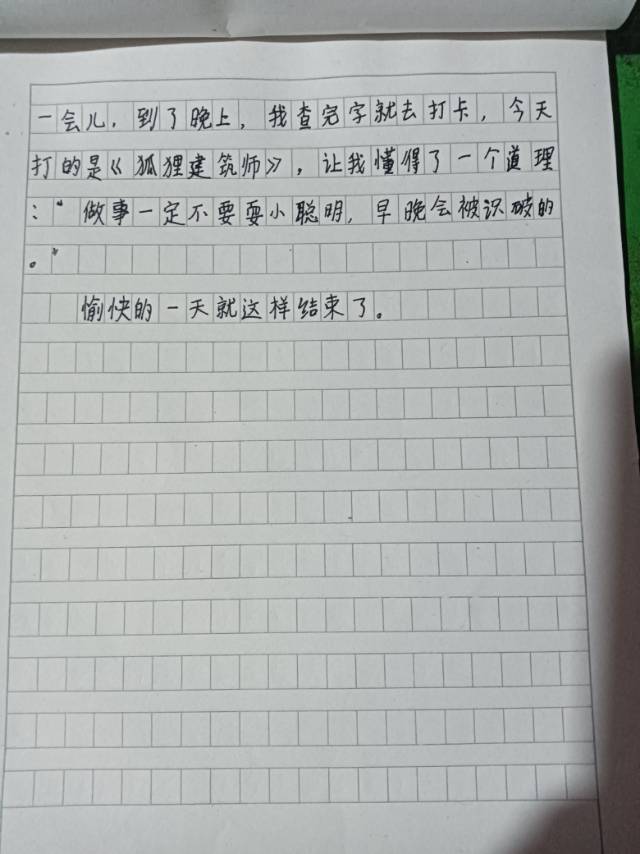 一会儿，到了晚上，我查完字就去打卡，今天
打的是《狐狸建筑师》，让我懂得了一个道理
：“做事一定不要耍小聪明，早晚会被识破的
。”
愉快的一天就这样结束了。